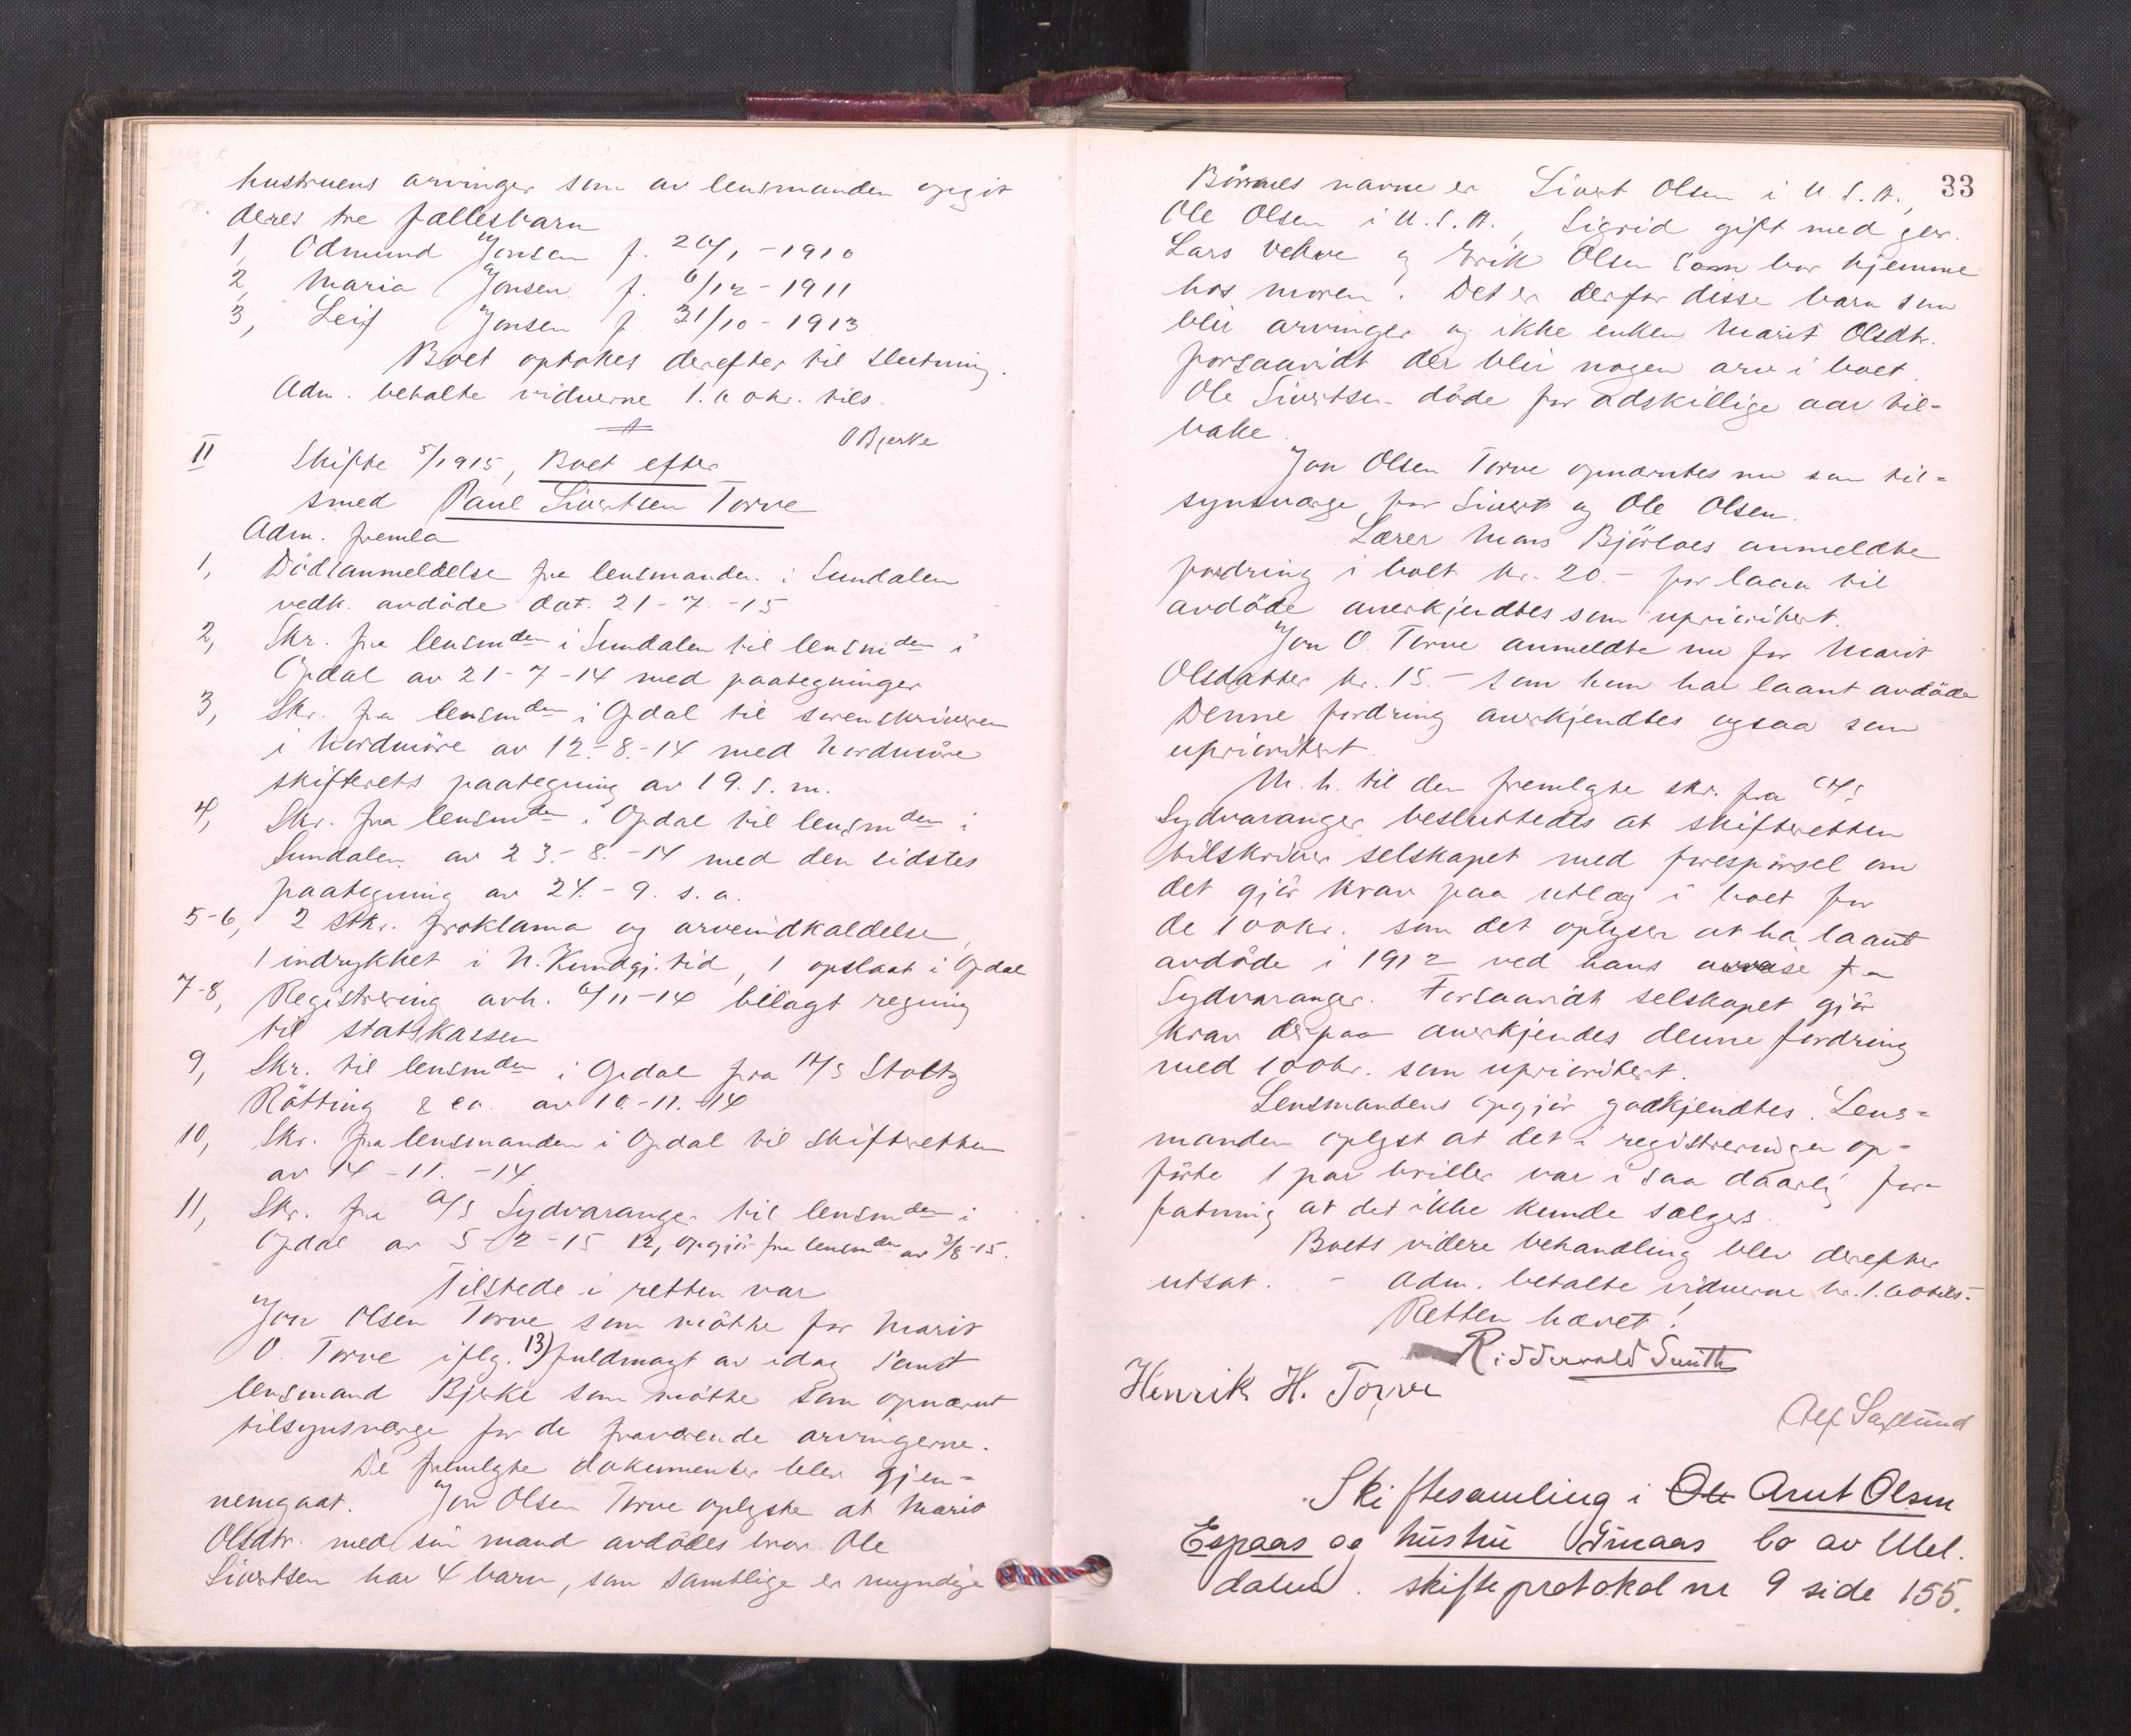 hustruens arvinger som av lensmanden opgit
deres tre fællesbarn
1, Odmund Jonsen f. 20/1 - 1910
2, Maria Jonsen f. 6/12 - 1911
3, Leif Jonsen f. 31/10 - 1913
Boet optokes derefter til slutning.
Adm. betalte vidnerne 1.60 kr. tils.
O Bjerke
II Skifte 5/1915, Boet efter
smed Paul Sivertsen Torve
Adm. fremla
1, Dödsanmeldelse fra lensmanden i Sundalen
vedk. avdöde dat. 21-7-15
2, Skr. fra lensmden i Sundalen til lensmden i
Opdal av 21-7-14 med paategninger
3, Skr. fra lensmden i Opdal til sorenskriveren
i Nordmöre av 12-8-14 med Nordmöre
skifterets paategning av 19. s. m.
4, Skr. fra lensmden i Opdal til lensmden i
Sundalen av 23.-8.-14 med den sidstes
paategning av 24.-9. s. a.
5-6, 2 stkr. proklama og arveindkaldelse,
1 indrykket i N. Kundgj. tid, 1 opslaat i Opdal
7-8, Registrering avh. 6/11-14 bilagt regning
til statskassen
9, Skr. til lensmden i Opdal fra A/S Stoltz
Rötting & co. av 10.-11.-14
10, Skr. fra lensmanden i Opdal til skifteretten
av 14-11.-14.
11, Skr. fra A/S Sydvaranger til lensmden i
Opdal av 5-2-15 12, opgjör fra lensmden av 3/8-15.
Tilstede i retten var
Jon Olsen Torve som mötte for Marit
O. Torve iflg. 13) fuldmagt av idag samt
lensmand Bjerke som mötte som opnævnt
tilsynsværge for de fraværende arvingerne.
De fremlagte dokumenter blev gjen=
nemgaat. Jon Olsen Torve oplyste at Marit
Olsdtr. med sin mand avdödes bror Ole
Sivertsen har 4 barn, som samtlige er myndige
33
Börnenes navne er Sivert Olsen i U.S.A.,
Ole Olsen i U.S.A., Sigrid gift med
Lars og Erik Olsen som bor hjemme
hos moren. Det er derfor disse barn som
blir arvinger og ikke enken Marit Olsdtr.
forsaavidt der blir nogen arv i boet.
Ole Sivertsen döde for adskillige aar til=
bake.
Jon Olsen Torve opnævntes nu som til=
synsværge for Sivert og Ole Olsen.
Lærer Mons anmeldte
fordring i boet kr. 20.- for laan til
avdöde anerkjendtes som uprioritert.
Jon O. Torve anmeldte nu for Marit
Olsdatter kr. 15.- som hun har laant avdöde
Denne fordring anerkjendtes ogsaa som
uprioritert.
M. h. til den fremlagte skr. fra A/S
Sydvaranger besluttedes at skifteretten
tilskriver selskapet med forespörsel om
det gjör krav paa utlæg i boet for
de 100 kr. som det oplyser at ha laant
avdöde i 1912 ved hans avreise fra
Sydvaranger. Forsaavidt selskapet gjör
krav derpaa anerkjendes denne fordring
med 100 kr. som uprioritert.
Lensmandens opgjör godkjendtes. Lens=
manden oplyst at det i registreringen op=
förte 1 par briller var i saa daarlig for=
fatning at det ikke kunde sælges.
Boets videre behandling blev derefter
utsat. - Adm. betalte vidnerne kr. 1.60 tils.-
Retten hævet!
Ridderwold Smith
Henrik H. Torve
Skiftesamling i Ole Arnt Olsen
Espaas og hustru bo av Mel.
dalen. skifteprotokol nr 9 side 155.